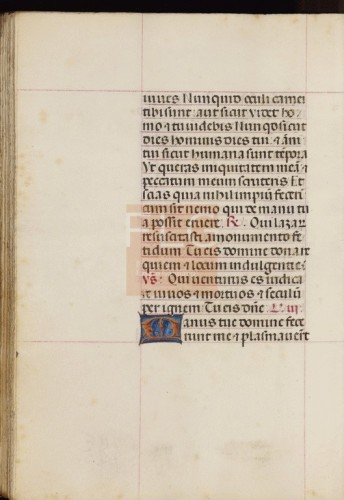 iudices Nunquid oculi carnei
tibi sunt aut sicut videt ho
mo ⁊ tu videbis Nunqd sicut
dies hominis dies tui ⁊ anni
tui sicut humana sunt tempora
Ut queras iniquitatem meam ⁊
peccatum meum scruteris Et
scias quia nihil impium fecerim
cum sit nemo qui de manu tu
a possit eruere R. Qui lazar
resuscitasti a monumento fe
tidum Tu eis domine dona re
quiem ⁊ locum indulgentie
vs. Qui venturus es iudica
re vivos ⁊ mortuos ⁊ seculum
per ignem Tu eis dne L. iii
Manus tue domine fece
runt me ⁊ plasmaverunt